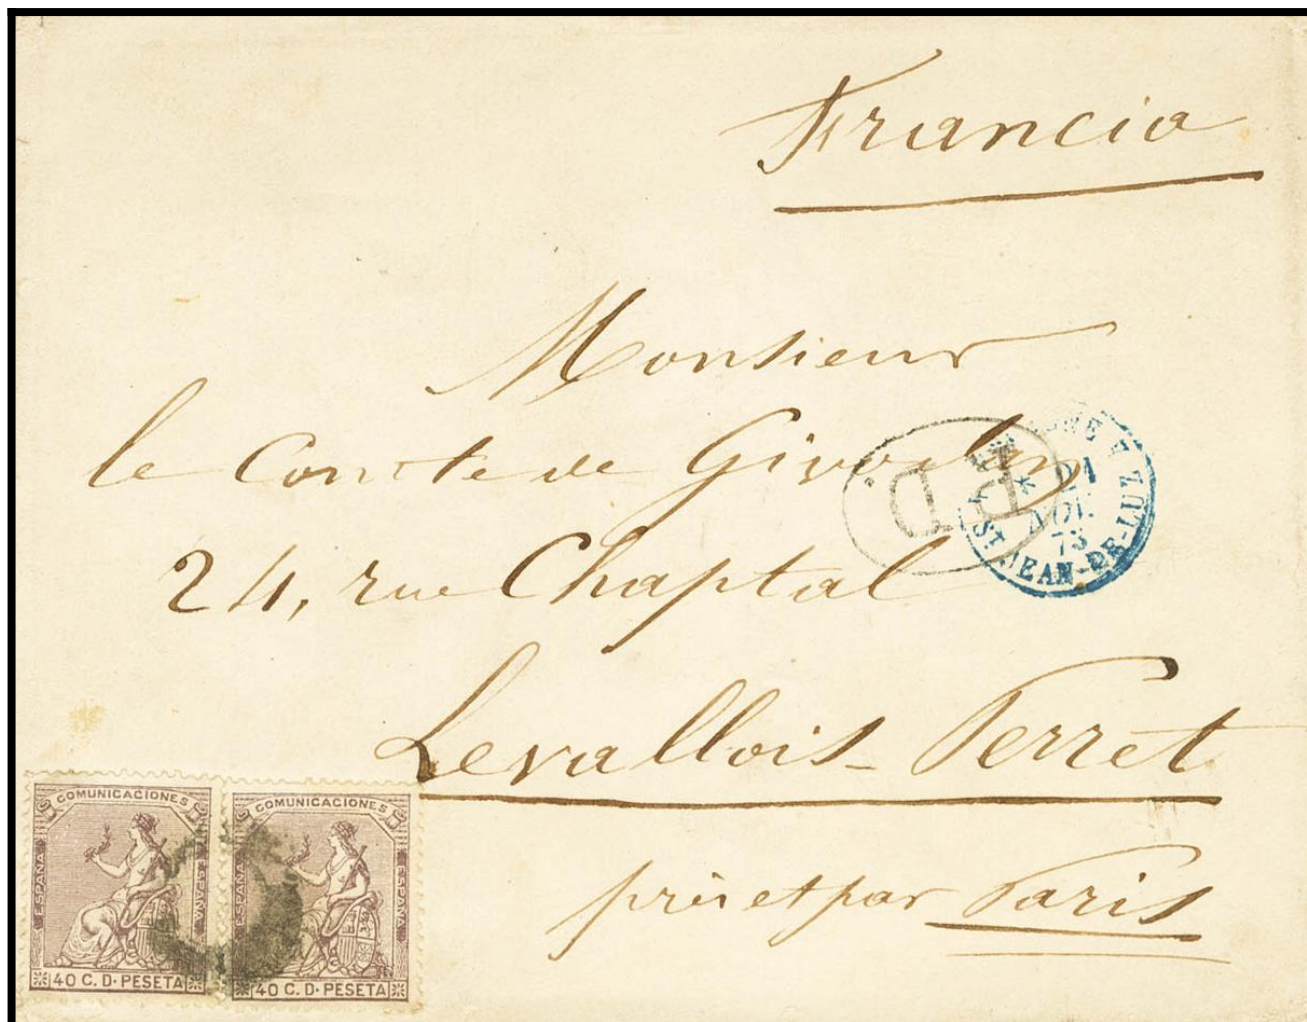 Francia
Monsieur
le Comte de Givodan
24, rue Chaptal
Levallois-Perret
près et par Paris
P.D.
ST JEAN-DE-LUZ
* 21
NOV.
73
COMUNICACIONES
ESPAÑA
ESPAÑA
40 C. D. PESETA
COMUNICACIONES
ESPAÑA
ESPAÑA
40 C. D. PESETA